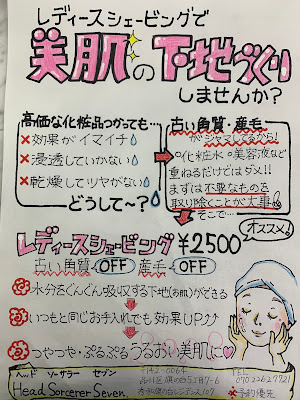 レディースシェービングで
美肌の下地づくり
しませんか?
高価な化粧品つかっても…
×効果がイマイチ
×浸透していかない
×乾燥してツヤがない
どうして〜?
古い角質・産毛
がジャマしてるから!
◦化粧水◦美容液など
重ねるだけではダメ!!
まずは不要なものを
取り除くことが大事!
そこで…
オススメ!
レディースシェービング ¥2500
古い角質 OFF 産毛 OFF
水分をぐんぐん吸収する下地(お肌)ができる
いつもと同じお手入れでも効果UP
つやつや・ぷるぷるうるおい美肌に♡
ヘッド ソーサラー セブン
Head Sorcerer Seven
〒142-0064
品川区旗の台5-17-6
TEL
070 2262 7721
※予約優先